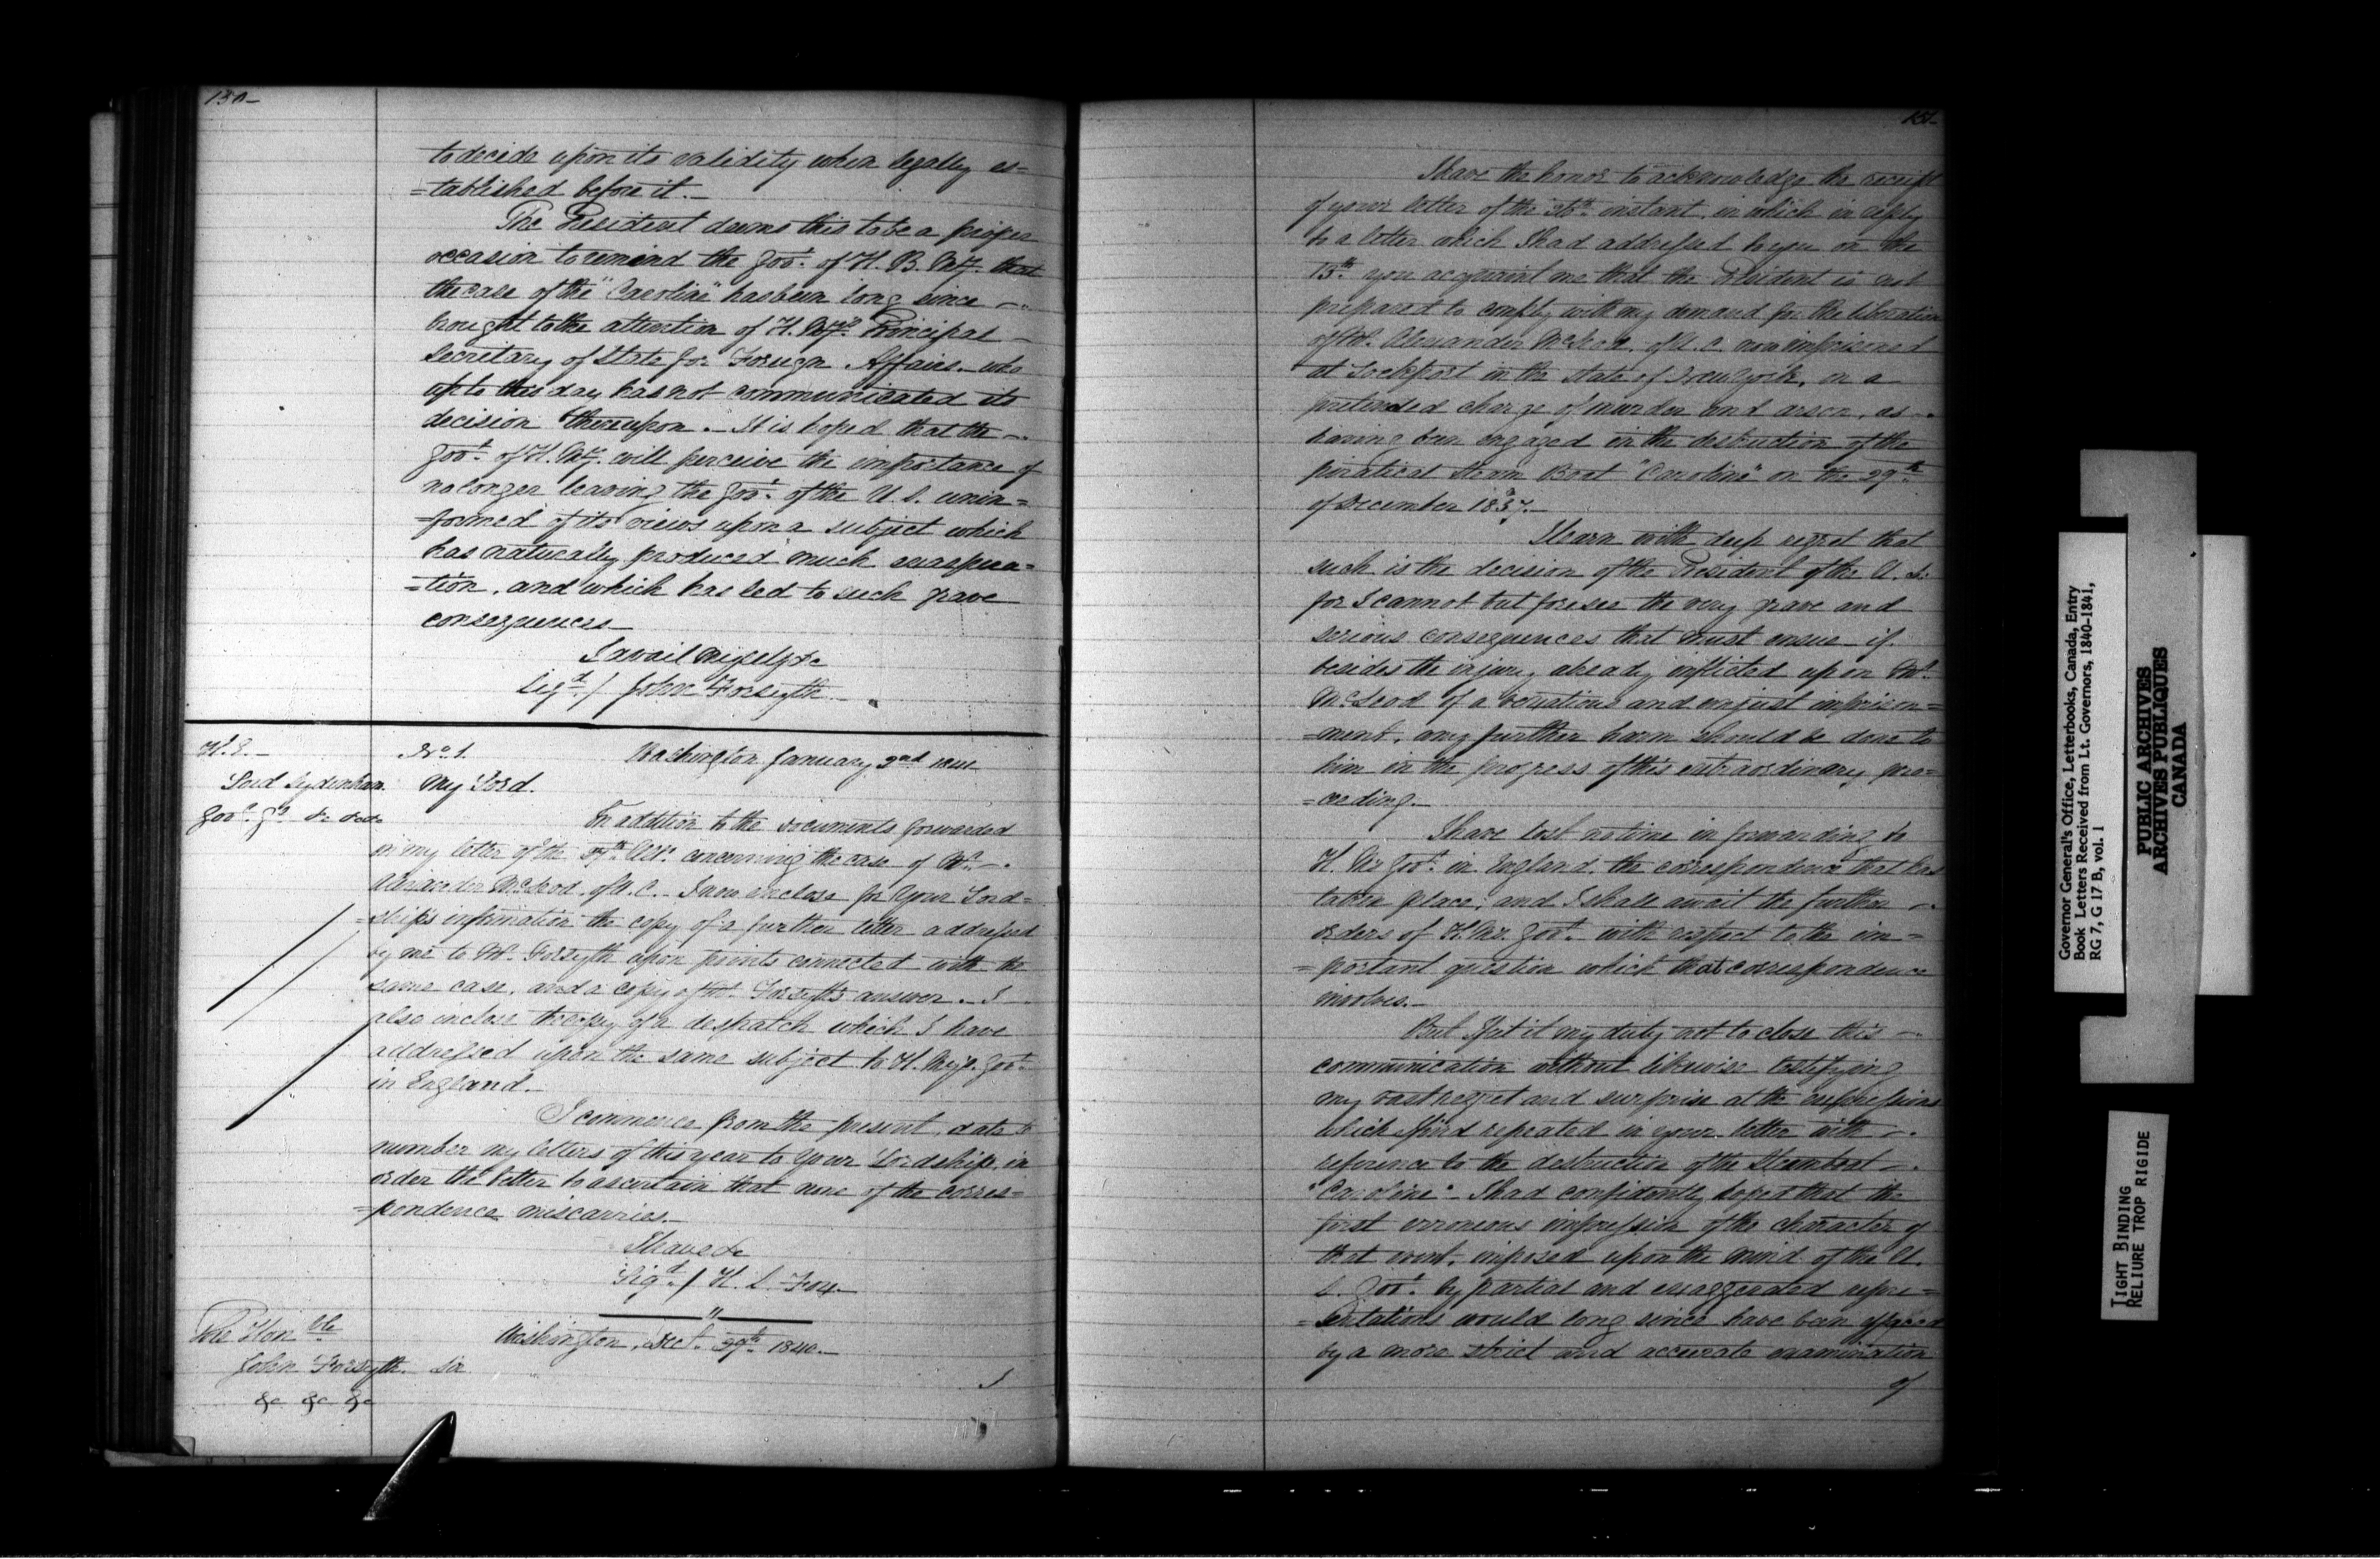 130-
to decide upon its validity when legally es=
=tablished before it.-
The President deems this to be a proper
occasion to remind the Govt. of H. B. My. that
the case of the "Caroline" has been long since -
brought to the attention of H. My's. Principal -
Secretary of State for Foreign Affairs - who
up to this day has not communicated its
decision thereupon. - It is hoped that the -
Govt. of H. My. will perceive the importance of
no longer leaving the Govt. of the U. S. unin=
=formed of its views upon a subject which
has naturally produced much exaspera=
=tion, and which has led to such grave
consequences -
I avail myself &c
Sigd. / John Forsyth -
H. E. -
Lord Sydenham
Govr. Gl. &c &c &c
No. 1. Washington January 2nd
My Lord.
In addition to the documents forwarded
in my letter of the ulto. concerning the case of Mr. -
Alexander McLeod, of U. C. - I now enclose for Your Lord=
=ship's information the copy of a further letter addressed
by me to Mr. Forsyth upon points connected with the
same case, and a copy of Mr. Forsyth's answer. - I
also inclose the copy of a despatch which I have
addressed upon the same subject to H. My's. Govt.
in England. -
I commence from the present date to
number my letters of this year to Your Lordship, in
order the better to ascertain that none of the corres=
=pondence miscarries. -
I have &c
Sigd. / H. S. Fox -
The Honble
John Forsyth.
&c &c &c
Washington, Decr. 1840. -
Sir
I
131-
I have the honor to acknowledge the receipt
of your letter of the 26th. instant, in which in reply
to a letter which I had addressed to you on the
13th. you acquaint me that the President is not
prepared to comply with my demand for the liberation
of Mr. Alexander McLeod, of U. C. now imprisoned
at Lockport in the State of New York, on a
pretended charge of murder and arson, as -
having been engaged in the destruction of the
piratical Steam Boat "Caroline" on the 29th.
of December 1837. -
I learn with deep regret that
such is the decision of the President of the U. S.
for I cannot but foresee the very grave and
serious consequences that must ensue - if
besides the injury already inflicted upon Mr.
McLeod of a vexatious and unjust imprison=
=ment, any further harm should be done to
him in the progress of this extraordinary pro=
=ceeding. -
I have lost no time in forwarding to
H. Ms Govt. in England, the correspondence that has
taken place, and I shall await the further -
orders of H. Ms. Govt. with respect to the im=
=portant question which that correspondence
involves. -
But I feel it my duty not to close this -
communication without likewise testifying
my vast regret and surprise at the expressions
which I find repeated in your letter with -
reference to the destruction of the Steamboat -
"Caroline" - I had confidently hoped that the
first erroneous impression of the character of
that event, imposed upon the mind of the U.
S. Govt. by partial and exaggerated repre=
=sentations would long since have been effaced
by a more strict and accurate examination
of
Governor General's Office, Letterbooks, Canada, Entry
Book Letters Received from Lt. Governors, 1840-1841,
RG 7, G 17 B, vol. 1
PUBLIC ARCHIVES
ARCHIVES PUBLIQUES
CANADA
TIGHT BINDING
RELIURE TROP RIGIDE